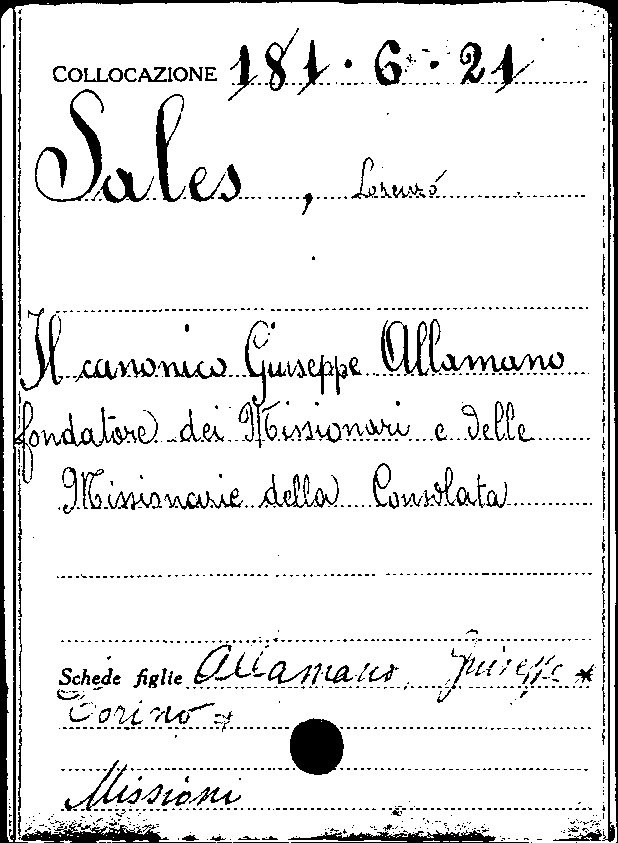 COLLOCAZIONE 181 · 6 · 21
Sales, Lorenzo
Il canonico Giuseppe Allamano
fondatore dei Missionari e delle
Missionarie della Consolata
Schede figlie Allamano, Giuseppe *
Torino *
Missioni